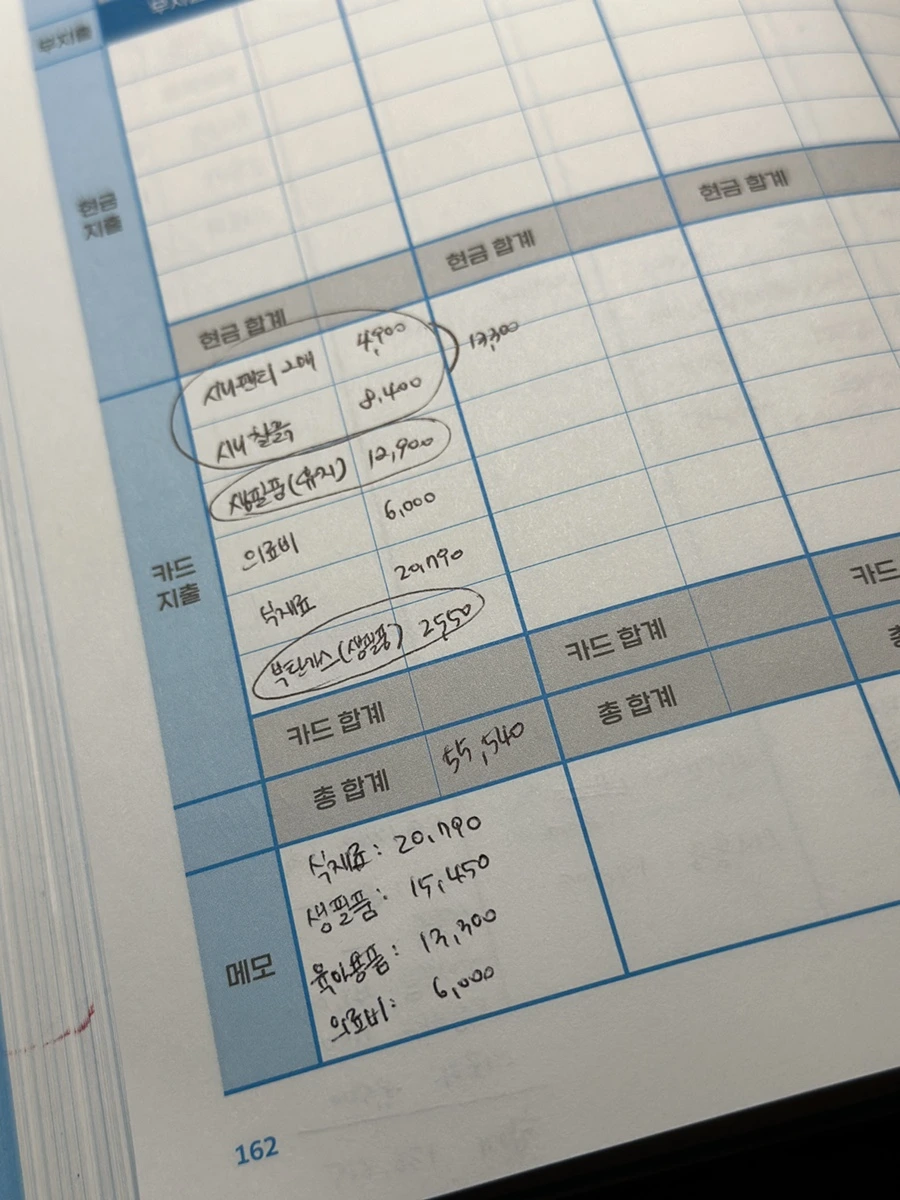 무지출
현금
지출
현금 합계
현금 합계
현금 합계
카드
지출
4,900
13,300
시내 찰흙 8,400
생필품(휴지) 12,900
의료비 6,000
식재료 20,790
부탄가스(생필품) 2,550
카드 합계
카드 합계
카드
총 합계 55,540
총 합계
총
메모
식재료: 20,790
생필품: 15,450
육아용품: 13,300
의료비: 6,000
162